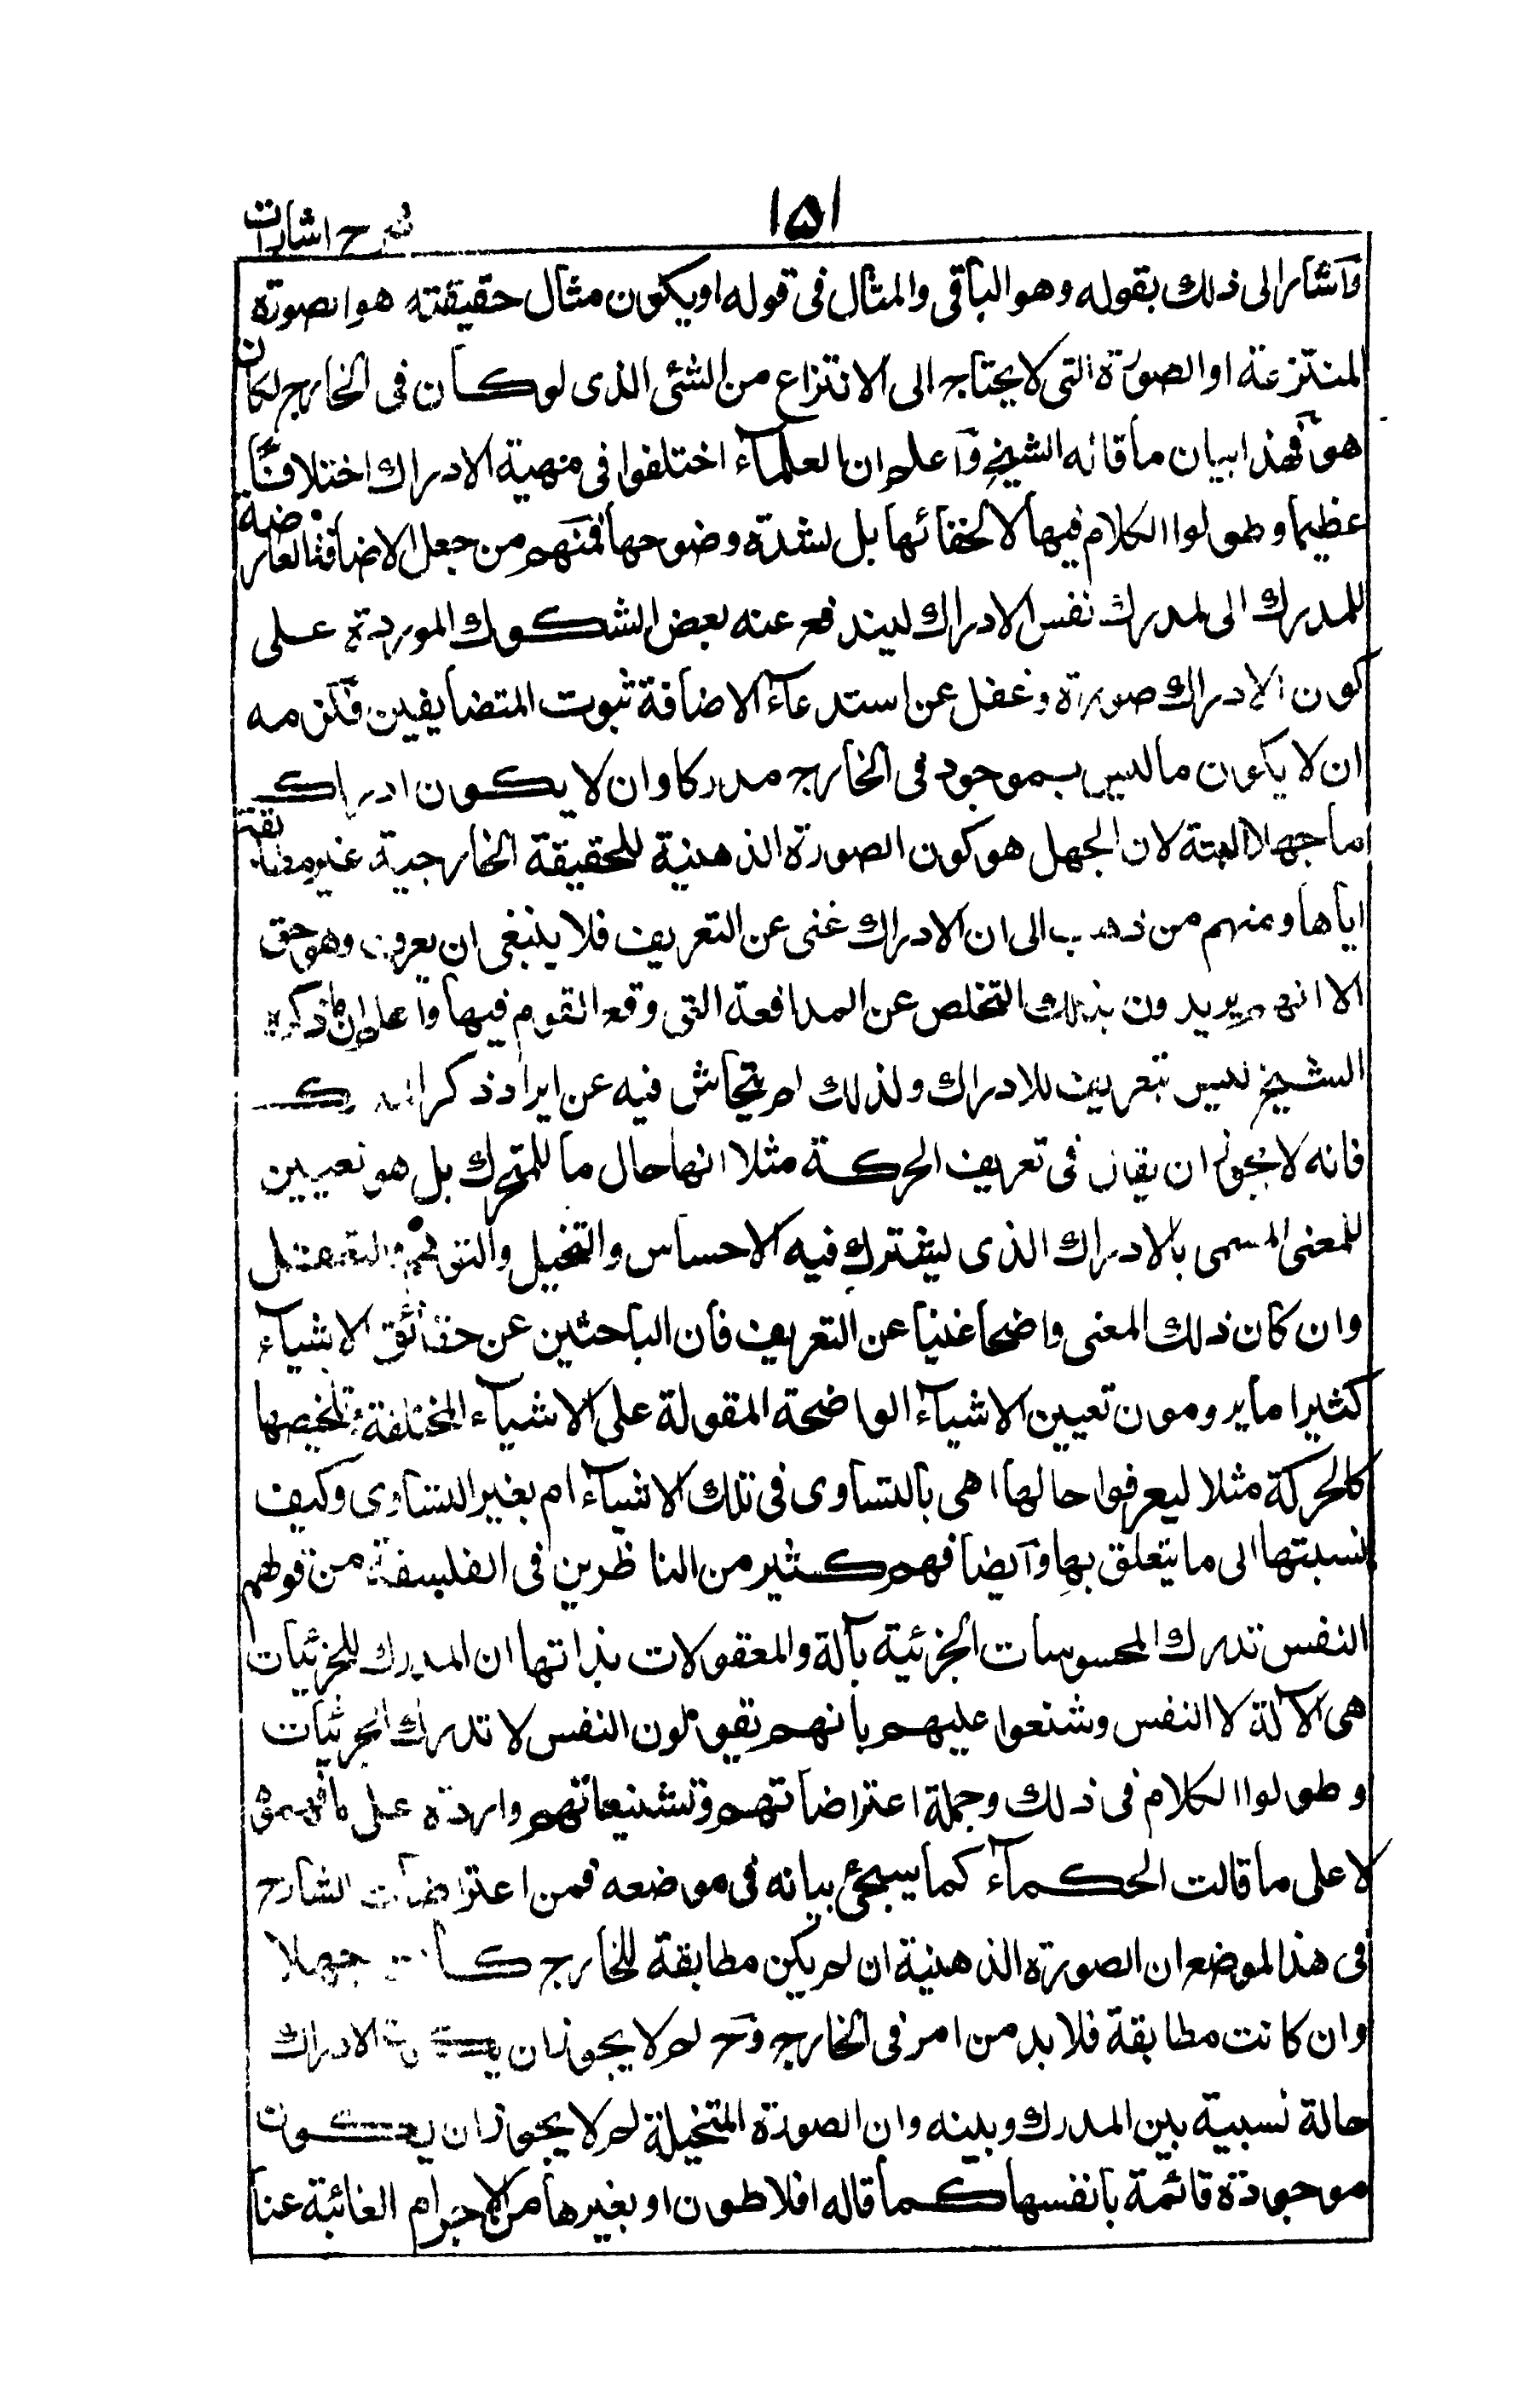 شرح اشارات
١٥١
واشار الى ذلك بقوله وهو الباقى والمثال فى قوله او يكون مثال حقيقته هو الصورة
المنتزعة او الصورة التى لا يحتاج الى الانتزاع من الشئ الذى لو كان فى الخارج لكان
هو فهذا بيان ما قاله الشيخ واعلم ان العلماء اختلفوا فى مهية الادراك اختلافا
عظيما وطولوا الكلام فيها لا لخفائها بل لشدة وضوحها فمنهم من جعل الاضافة العارضة
للمدرك الى المدرك نفس الادراك ليندفع عنه بعض الشكوك الموردة على
كون الادراك صورة وغفل عن استدعاء الاضافة ثبوت المتضايفين فلزمه
ان لا يكون ما ليس بموجود فى الخارج مدركا وان لا يكون ادراك
ما جهلا البتة لان الجهل هو كون الصورة الذهنية للحقيقة الخارجية غير مطابقة
اياها ومنهم من ذهب الى ان الادراك غنى عن التعريف فلا ينبغى ان يعرف وهو حق
الا انهم يريدون بذلك التخلص عن المدافعة التى وقع القوم فيها واعلم ان ما ذكره
الشيخ ليس بتعريف للادراك ولذلك لم يتحاش فيه عن ايراد ذكر المدرك
فانه لا يجوز ان يقال فى تعريف الحركة مثلا انها حال ما للمتحرك بل هو تعيين
للمعنى المسمى بالادراك الذى يشترك فيه الاحساس والتخيل والتوهم والتعقل
وان كان ذلك المعنى واضحا غنيا عن التعريف فان الباحثين عن حقائق الاشياء
كثيرا ما يرومون تعيين الاشياء الواضحة المقولة على الاشياء المختلفة وتلخيصها
كالحركة مثلا ليعرفوا حالها اهى بالتساوى فى تلك الاشياء ام بغير التساوى وكيف
نسبتها الى ما يتعلق بها وايضا فهم كثير من الناظرين فى الفلسفة من قولهم
النفس تدرك المحسوسات الجزئية بآلة والمعقولات بذاتها ان المدرك للجزئيات
هى الآلة لا النفس وشنعوا عليهم بانهم يقولون النفس لا تدرك الجزئيات
وطولوا الكلام فى ذلك وجملة اعتراضاتهم وتشنيعاتهم واردة على ما فهموه
لا على ما قالت الحكماء كما يسجئ بيانه فى موضعه فمن اعتراضات الشارح
فى هذا الموضع ان الصورة الذهنية ان لم يكن مطابقة للخارج كانت جهلا
وان كانت مطابقة فلا بد من امر فى الخارج وح لم لا يجوز ان يكون الادراك
حالة نسبية بين المدرك وبينه وان الصورة المتخيلة لم لا يجوز ان يكون
موجودة قائمة بانفسها كما قاله افلاطون او بغيرها من الاجرام الغائبة عنا